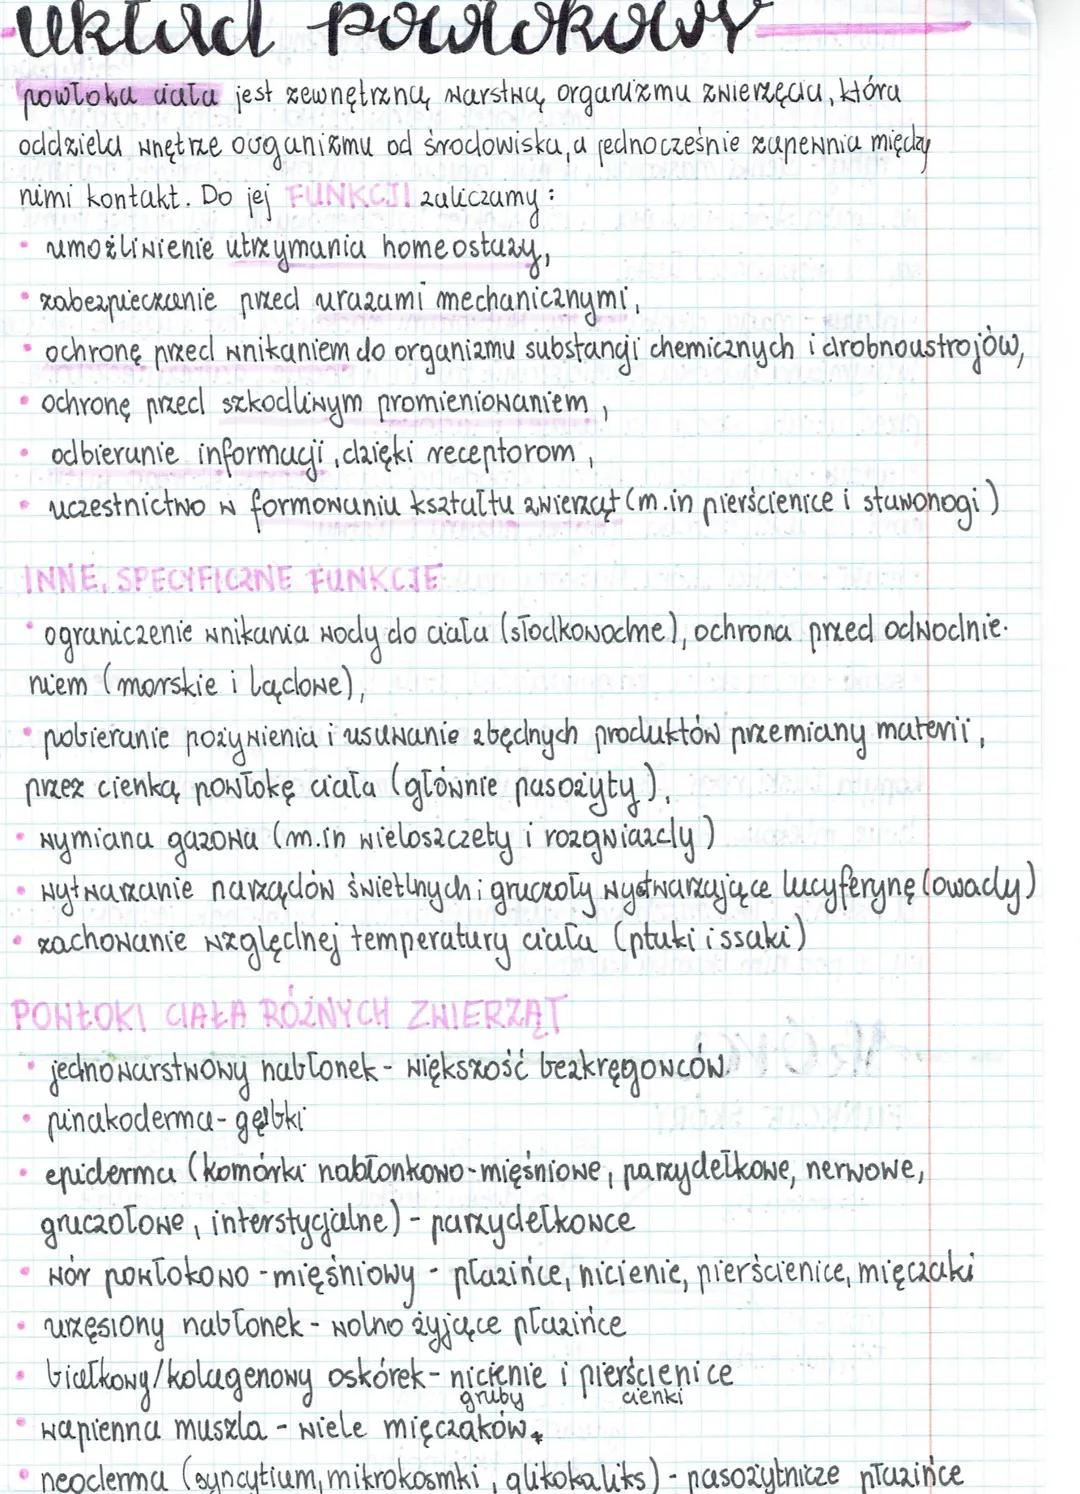 układ powłokowy
powłoka ciała jest zewnętrzną warstwą organizmu zwierzęcia, która
oddziela wnętrze organizmu od środowiska, a jednocześnie zapewnia między
nimi kontakt. Do jej FUNKCJI zaliczamy:
• umożliwienie utrzymania homeostazy,
• zabezpieczenie przed urazami mechanicznymi,
• ochronę przed wnikaniem do organizmu substancji chemicznych i drobnoustrojów,
• ochronę przed szkodliwym promieniowaniem,
• odbieranie informacji, dzięki receptorom,
• uczestnictwo w formowaniu kształtu zwierząt (m.in pierścienice i stawonogi)
INNE, SPECYFICZNE FUNKCJE
• ograniczenie wnikania wody do ciała (słodkowodne), ochrona przed odwodnie-
niem (morskie i lądowe),
• pobieranie pożywienia i usuwanie zbędnych produktów przemiany materii,
przez cienką powłokę ciała (głównie pasożyty),
• wymiana gazowa (m.in wieloszczety i rozgwiazdy)
• wytwarzanie narządów świetlnych; gruczoły wytwarzające lucyferynę (owady)
• zachowanie względnej temperatury ciała (ptaki i ssaki)
POWŁOKI CIAŁA RÓŻNYCH ZWIERZĄT
• jednowarstwowy nabłonek - większość bezkręgowców
• pinakoderma - gąbki
• epiderma (komórki nabłonkowo-mięśniowe, parzydełkowe, nerwowe,
gruczołowe, interstycjalne) - parzydełkowce
• wór powłokowo-mięśniowy - płazińce, nicienie, pierścienice, mięczaki
• urzęsiony nabłonek - wolno żyjące płazińce
• białkowy/kolagenowy oskórek - nicienie i pierścienice
gruby cienki
• wapienna muszla - wiele mięczaków
• neoderma (syncytium, mikrokosmki, glikokaliks) - pasożytnicze płazińce